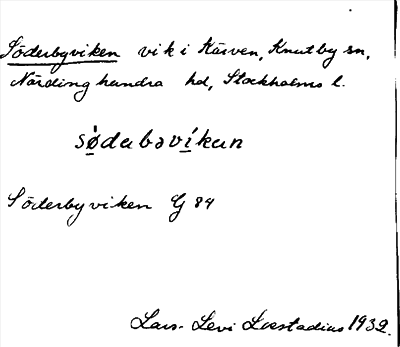 Söderbyviken vik i Kärven, Knutby sn,
Närdinghundra hd, Stockholms l.
sø̀dəbəvíkən
Söderbyviken G 84
Lars-Levi Læstadius 1932.